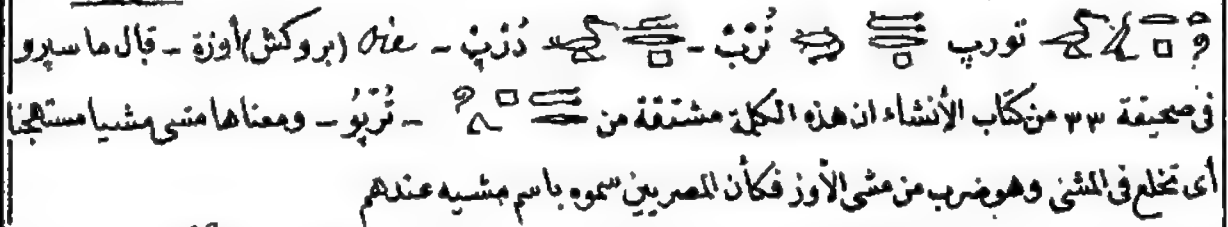 تورب تُرْبْ - دُرْبْ - Oie (بروكش) أوزة - قال ماسپرو
فى صحيفة ٣٣ من كتاب الأنشاء ان هذه الكلمة مشتقة من - تُرْپُو - ومعناها مشى مشيا مستهجنا
أى تخلع فى المشى وهو ضرب من مشى الأوز فكأن المصريين سموه باسم مشيه عندهم